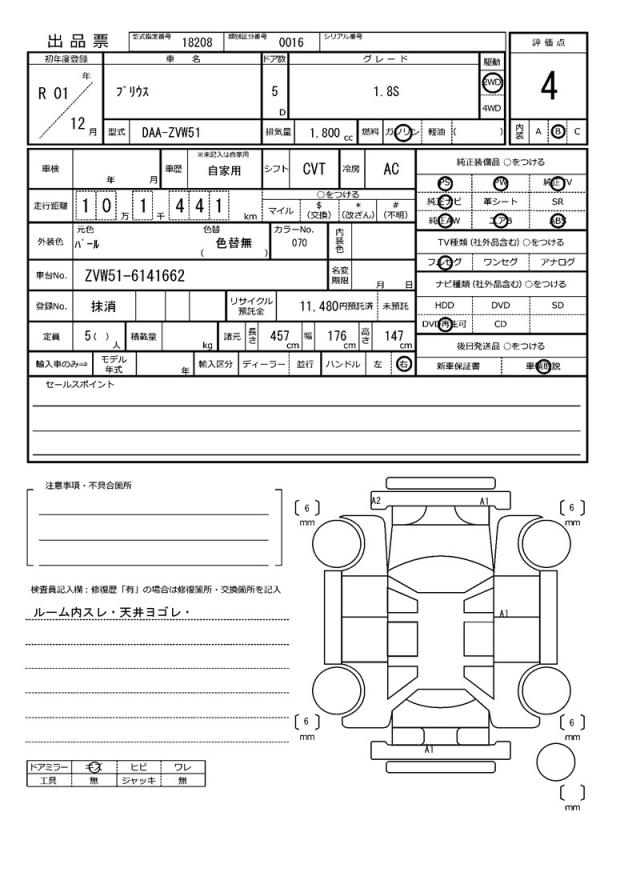 出品票 型式指定番号 18208 類別区分番号 0016 シリアル番号
評価点
4
内装 A B C
初年度登録 車名 ドア数 グレード 駆動
R 01 年 12 月
プリウス 5 D 1.8S 2WD 4WD
型式 DAA-ZVW51 排気量 1.800 cc 燃料 ガソリン 軽油 ( )
車検 年 月 車歴 ※未記入は自家用 自家用 シフト CVT 冷房 AC
走行距離 10万1千441 km
○をつける
マイル $(交換) *(改ざん) #(不明)
外装色 元色 パール 色替 ( 色替無 ) カラーNo. 070 内装色
車台No. ZVW51-6141662 名変期限 月 日
登録No. 抹消 リサイクル預託金 11,480円預託済 未預託
定員 5( ) 人 積載量 kg 諸元 長さ 457 cm 幅 176 cm 高さ 147 cm
輸入車のみ⇒ モデル年式 年 輸入区分 ディーラー 並行 ハンドル 左 右
純正装備品 ○をつける
PS PW 純正TV
純正ナビ 革シート SR
純正AW エアB ABS
TV種類(社外品含む) ○をつける
フルセグ ワンセグ アナログ
ナビ種類(社外品含む) ○をつける
HDD DVD SD
DVD再生可 CD
後日発送品 ○をつける
新車保証書 車輌取説
セールスポイント
注意事項・不具合箇所
検査員記入欄：修復歴「有」の場合は修復箇所・交換箇所を記入
ルーム内スレ・天井ヨゴレ・
ドアミラー キズ ヒビ ワレ
工具 無 ジャッキ 無
A2 A1
[ 6 ] mm [ 6 ] mm
A1
[ 6 ] mm [ 6 ] mm
A1
[ ] mm